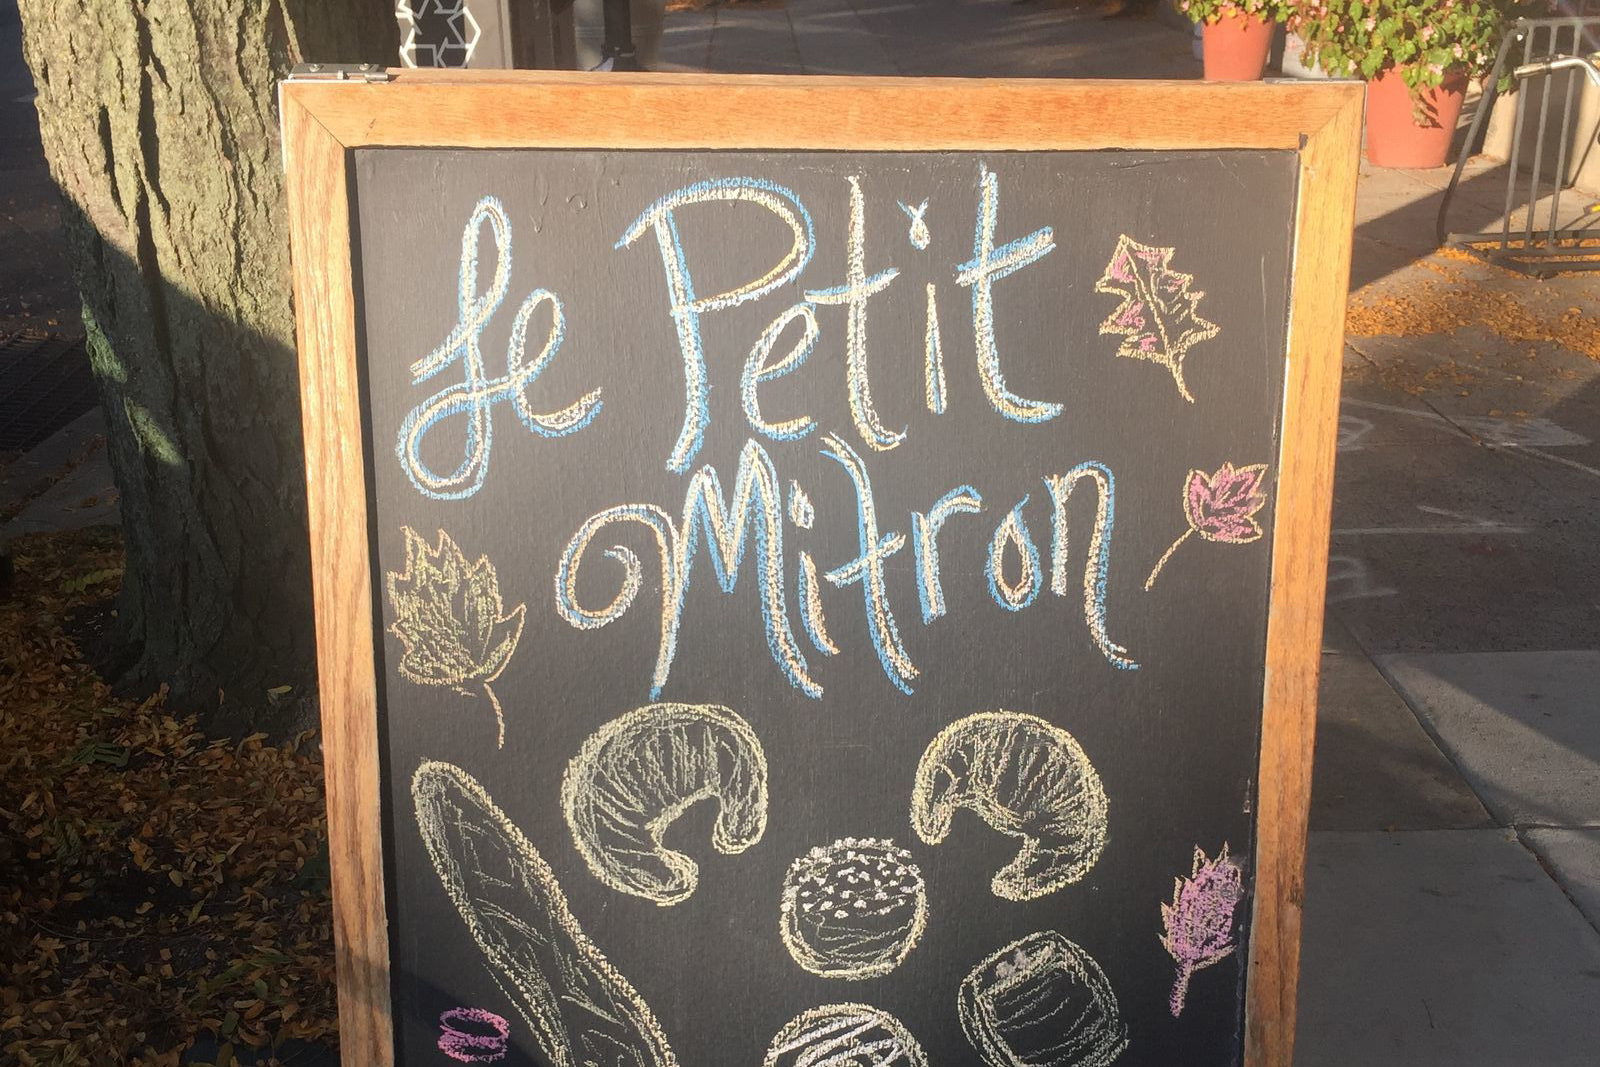 Le Petit
Mitron